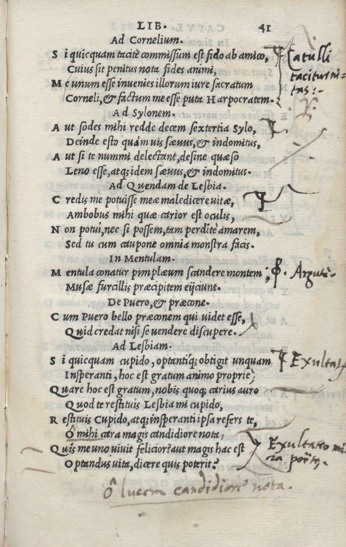 LIB. 41
Ad Cornelium.
S i quicquam tacite commissum est fido ab amico,
Cuius sit penitus nota fides animi,
M e unum esse invenies illorum iure sacratum
Corneli, & factum me esse puta Harpocratem.
Catulli
tacitus
Ad Sylonem.
A ut sodes mihi redde decem sextertia Sylo,
Deinde esto quam vis sævus, & indomitus,
A ut si te nummi delectant, desine quæso
Leno esse, atq; idem sævus, & indomitus.
Ad Quendam de Lesbia.
C redis me potuisse meæ maledicere vitæ,
Ambobus mihi quæ carior est oculis,
N on potui, nec si possem, tam perdite amarem,
Sed tu cum caupone omnia monstra facis.
In Mentulam.
M entula conatur pimplæum scandere montem
Musæ furcillis præcipitem eijciunt.
De Puero, & præcone.
C um Puero bello præconem qui videt esse,
Quid credat nisi se vendere discupere.
Ad Lesbiam.
S i quicquam cupido, optantiq; obtigit unquam
Insperanti, hoc est gratum animo proprie;
Quare hoc est gratum, nobis quoq; carius auro
Quod te restituis Lesbia mi cupido,
R estituis Cupido, atq; insperanti ipsa refers te,
O mihi atra magis candidiore nota,
Quis me uno vivit felicior? aut magis hac est
Optandus vita, dicere quis poterit?
Exultatio
ô lucem candidiore nota.